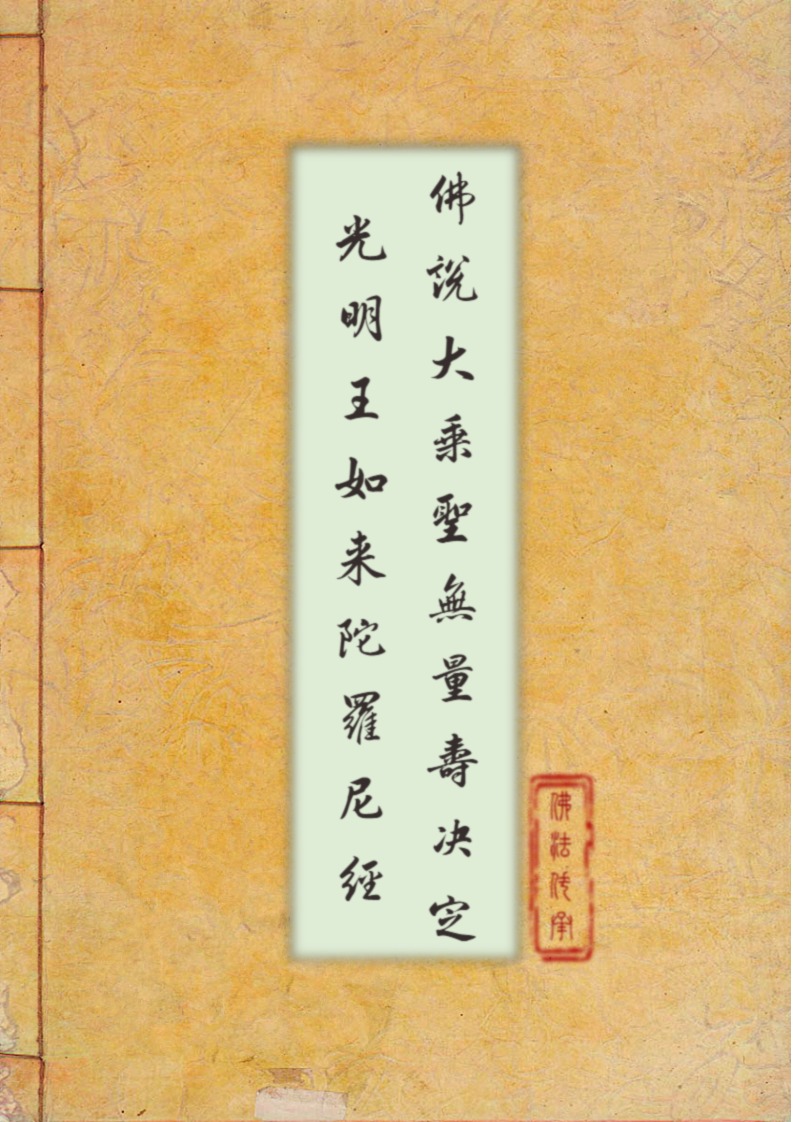 佛說大乘聖無量壽决定
光明王如来陀羅尼經
佛法传承